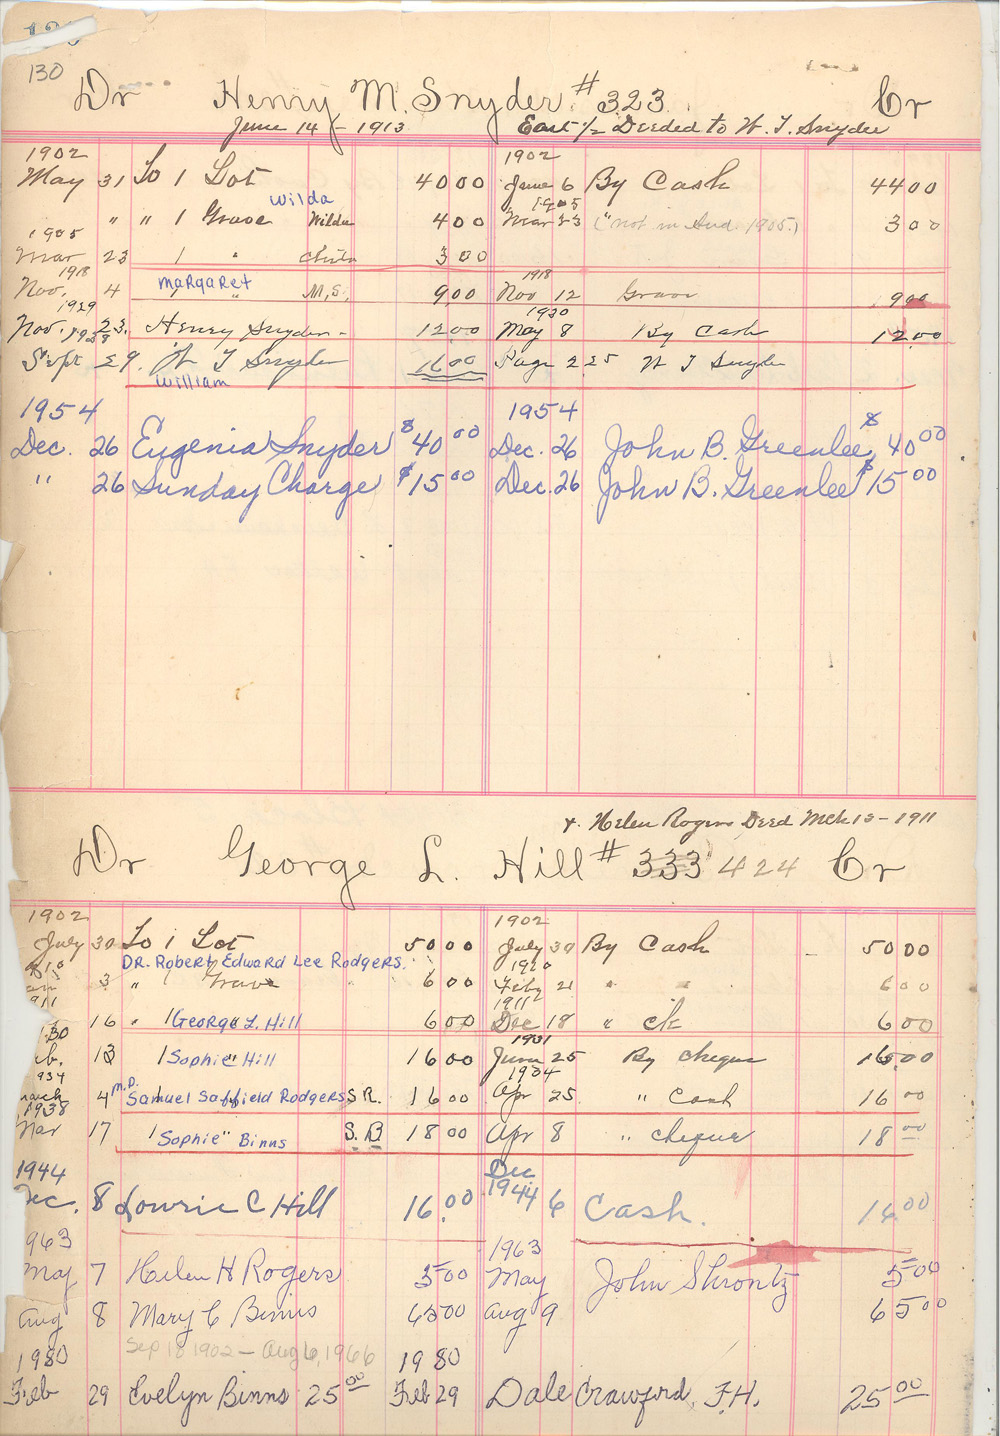 130
Dr Henry M. Snyder #323 Cr
June 14 - 1913 East 1/2 Deeded to W. T. Snyder
1902 1902
May 31 To 1 Lot 40 00 June 6 By Cash 44 00
Wilda 1905
" " 1 Grave Wilda 4 00 Mar 23 ("not in Aud. 1905.) 3 00
1905
Mar 23 1 " 3 00
1918 Margaret 1918
Nov. 4 " M.S. 9 00 Nov 12 Grave 9 00
1929 1930
Nov. 23. Henry Snyder 12 00 May 8 By Cash 12.00
1938
Sept 29. W T Snyder 16 00 Page 225 W T Snyder
William
1954 1954
Dec. 26 Eugenia Snyder $40 00 Dec. 26 John B. Greenlee, $40 00
" 26 Sunday Charge $15 00 Dec. 26 John B. Greenlee $15 00
& Helen Rogers Deed Mch 13 - 1911
Dr George L. Hill # 333 424 Cr
1902 1902
July 30 To 1 Lot 50 00 July 30 By Cash 50 00
DR. Robert Edward Lee Rodgers.
1910
3 " 1 Grave 6 00 Feby 21 " " 6 00
911 1911
16 " 1 George L. Hill 6 00 Dec 18 " ck 6 00
30 1931
b. 13 1 Sophie" Hill 16 00 June 25 By cheque 16.00
934 1934
March 4 M.D. Samuel Saffield Rodgers S R. 16 00 Apr 25 " Cash 16 00
1938
Mar 17 1 Sophie" Binns S. B 18 00 Apr 8 " cheque 18 00
1944 Dec 1944
ec. 8 Lowrie C Hill 16.00 6 Cash. 16.00
963 1963
May 7 Helen H Rogers 5 00 May John Shrontz 5 00
Aug 8 Mary C Binns 65 00 Aug 9 65 00
Sep 18 1902 - Aug 6, 1966
1980 1980
Feb 29 Evelyn Binns 25 00 Feb 29 Dale Crawford F.H. 25 00